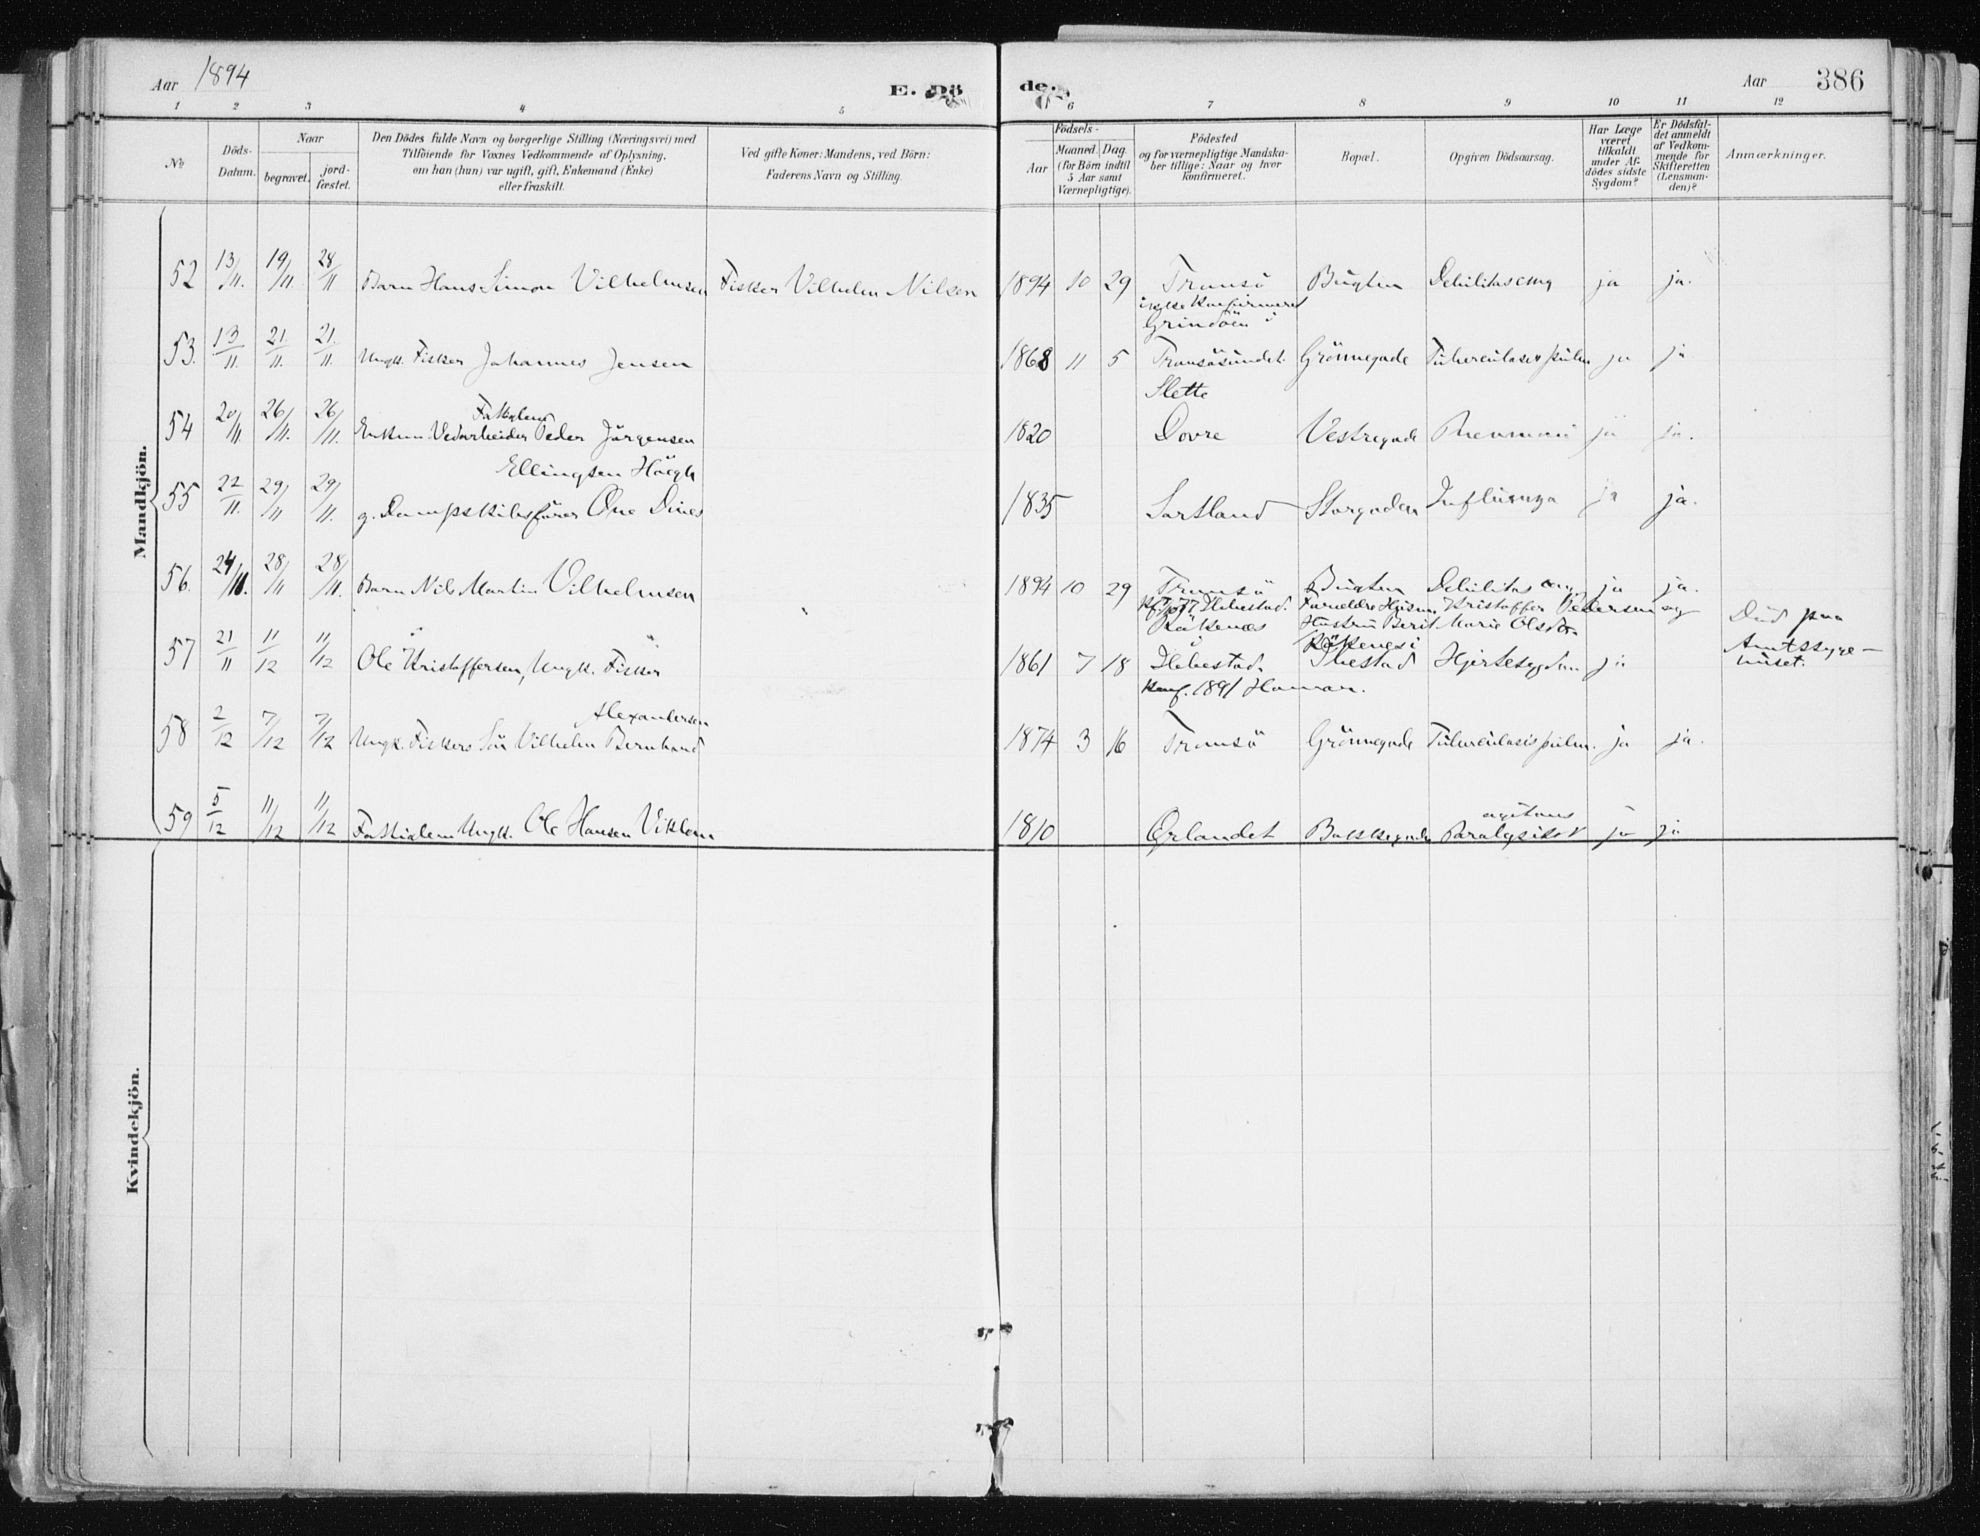 Aar 1894 E. Dö de. Aar 386
1 2 3 4 5 6 7 8 9 10 11 12
No
Döds-Datum.
Naar begravet. jordfæstet.
Den Dödes fulde Navn og borgerlige Stilling (Næringsvei) med
Tilföiende for Voxnes Vedkommende af Oplysning,
om han (hun) var ugift, gift, Enkemand (Enke)
eller fraskilt.
Ved gifte Koner: Mandens, ved Börn:
Faderens Navn og Stilling.
Födsels-
Aar Maaned. Dag.
(for Börn indtil
5 Aar samt
Værnepligtige).
Födested
og for værnepligtige Mandskaber
tillige: Naar og hvor
konfirmeret.
Bopæl.
Opgiven Dödsaarsag.
Har Læge
været
tilkaldt
under Afdödes
sidste
Sygdom?
Er Dödsfaldet
anmeldt
af Vedkommende
for
Skifteretten
(Lensmanden)?
Anmærkninger.
Mandkjön.
52 13/11. 19/11. 28/11 Barn Hans Simon Vilhelmsen Fisker Vilhelm Nilsen 1894 10 29 Tromsö Bugten Debilitas cong ja ja.
ikke konfirmeret
Grindöen i
53. 13/11. 21/11. 21/11. Ungk. Fisker Johannes Jensen 1868 11 5 Tromsösundet. Grönnegade Tuberculasis pulm ja ja
Slette
54 20/11. 26/11. 26/11. Enkem. Vedarbeider Peder Jörgensen 1820 Dovre Vestregade ja ja.
Ellingsen Höegh
55 22/11. 29/11 29/11. g. Dampskibsförer One Dines 1835 Sortland Storgaden Influenza ja ja.
56. 24/11. 28/11 28/11. Barn Nils Martin Vilhelmsen 1894 10 29 Tromsö Bugten Debilitas cong. ja ja.
Ibbestad. Forældre Kristoffer Pedersen og
Hustru Berit Marie Olsdtr Död paa
57 21/11 11/12 11/12 Ole Kristoffersen, Ungk. Fisker 1861 7 18 Ibbestad. Ibestad Hjertesygdom ja Amtssygehuset.
Konf. 1891
Alexandersen
58 2/12 7/12 7/12 Ungk. Fiskers Sön Vilhelm Bernhard 1874 3 16 Tromsö Grönnegade Tuberculasis pulm. ja ja.
agitans
59 5/12 11/12 11/12 Fattiglem Ungk. Ole Hansen 1810 Ørlandet Paralysis ja ja
Kvindekjön.